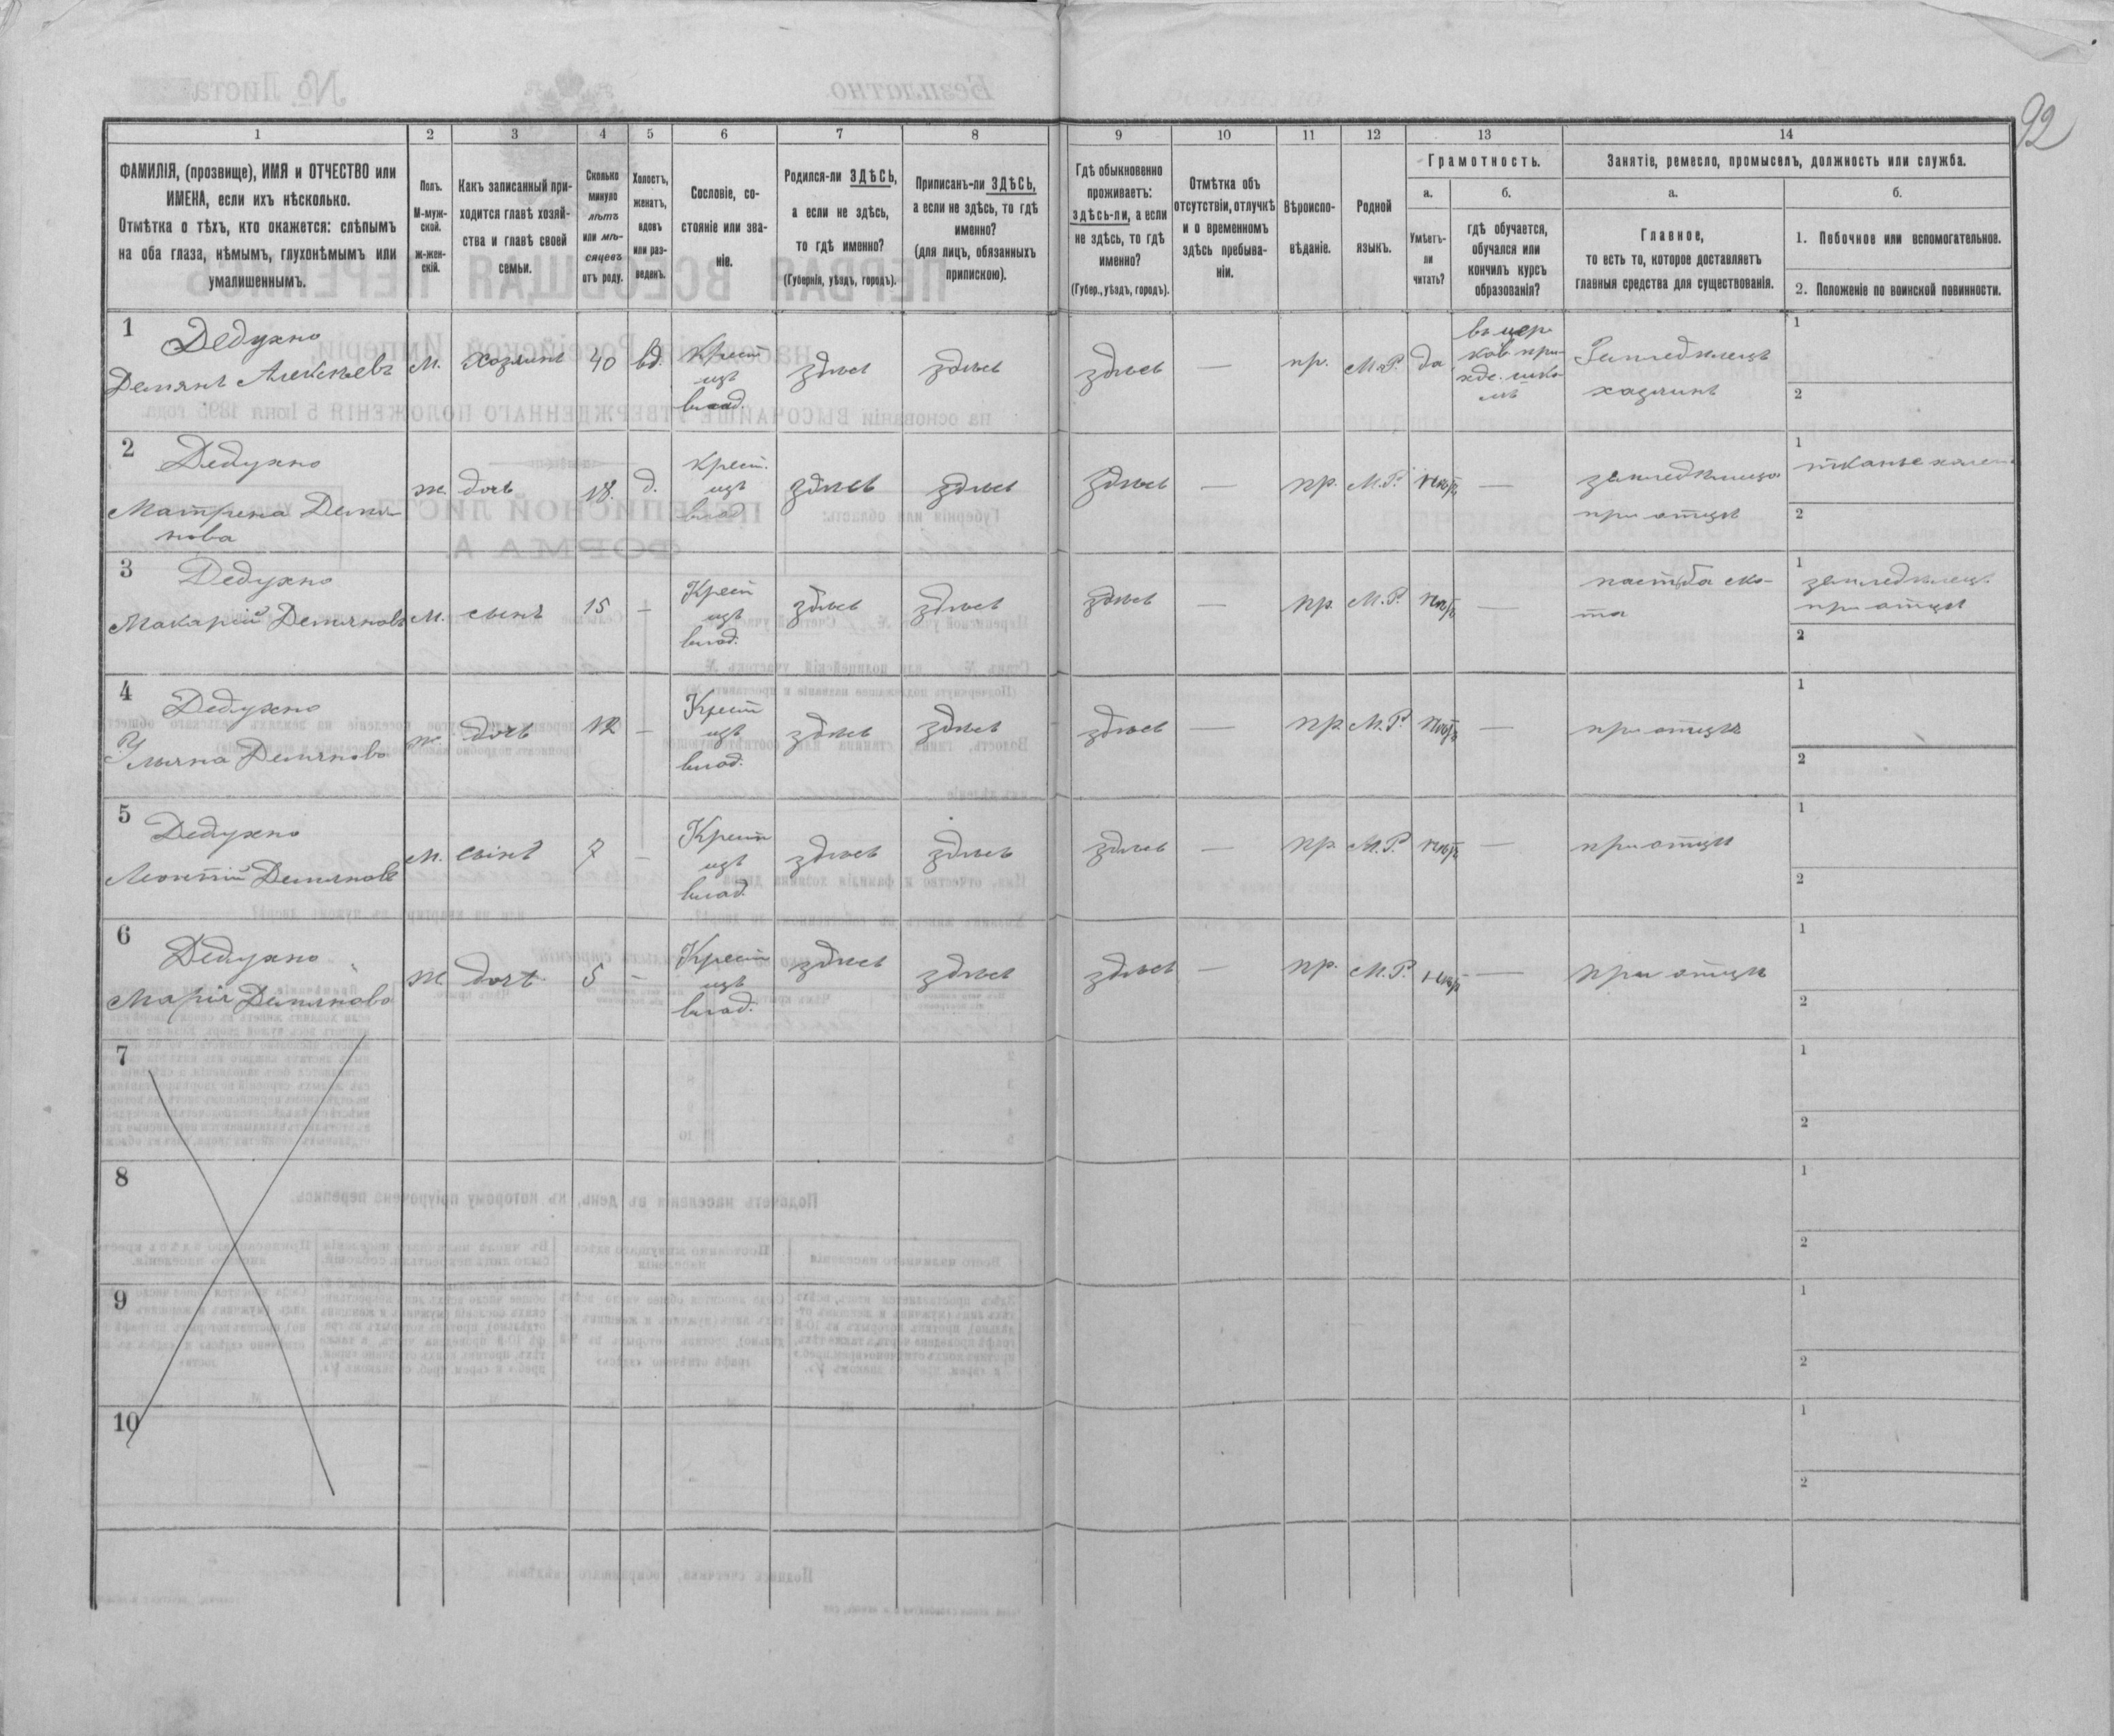 92
1 2 3 4 5 6 7 8 9 10 11 12 13 14
ФАМИЛІЯ, (прозвище), ИМЯ и ОТЧЕСТВО или
ИМЕНА, если ихъ нѣсколько.
Отмѣтка о тѣхъ, кто окажется: слѣпымъ
на оба глаза, нѣмымъ, глухонѣмымъ или
умалишеннымъ.
Полъ.
М-муж-
ской.
Ж-жен-
скій.
Какъ записанный при-
ходится главѣ хозяй-
ства и главѣ своей
семьи.
Сколько
минуло
лѣтъ
или мѣ-
сяцевъ
отъ роду.
Холостъ,
женатъ,
вдовъ
или раз-
веденъ.
Сословіе, со-
стояніе или зва-
ніе.
Родился-ли ЗДѢСЬ,
а если не здѣсь,
то гдѣ именно?
(Губернія, уѣздъ, городъ).
Приписанъ-ли ЗДѢСЬ,
а если не здѣсь, то гдѣ
именно?
(для лицъ, обязанныхъ
припискою).
Гдѣ обыкновенно
проживаетъ:
здѣсь-ли, а если
не здѣсь, то гдѣ
именно?
(Губер., уѣздъ, городъ).
Отмѣтка объ
отсутствіи, отлучкѣ
и о временномъ
здѣсь пребыва-
ніи.
Вѣроиспо-
вѣданіе.
Родной
языкъ.
Грамотность.
а.
Умѣетъ-
ли
читать?
б.
гдѣ обучается,
обучался или
кончилъ курсъ
образованія?
Занятіе, ремесло, промыселъ, должность или служба.
а.
Главное,
то есть то, которое доставляетъ
главныя средства для существованія.
б.
1. Побочное или вспомогательное.
2. Положеніе по воинской повинности.
1
Дедухно
Демянъ Алексѣевъ
М. хозяинъ 40 вд.
Крест
изъ
влад.
здѣсь здѣсь здѣсь — пр. М.Р. да
въ цер-
ков. при-
ход. шко-
лѣ
Земледѣлецъ
хозяинъ
1
2
2
Дедухно
Матрена Демя-
нова
ж. дочь 18. д.
крест.
изъ
влад.
здѣсь здѣсь здѣсь — пр. М.Р. нѣтъ —
земледѣлица
при отцѣ
1
тканье
2
3
Дедухно
Макарій Демяновъ
М. сынъ 15 —
Крест
изъ
влад.
здѣсь здѣсь здѣсь — пр. М.Р. нѣтъ —
пастьба ско-
та
1
земледѣлецъ
при отцѣ
2
4
Дедухно
Ульяна Демянова
ж. дочь 12 —
Крест
изъ
влад.
здѣсь здѣсь здѣсь — пр. М.Р. нѣтъ —
при отцѣ
1
2
5
Дедухно
Леонтій Демяновъ
М. сынъ 7 —
Крест
изъ
влад.
здѣсь здѣсь здѣсь — пр. М.Р. нѣтъ —
при отцѣ
1
2
6
Дедухно
Марія Демянова
ж. дочь 5 —
Крест
изъ
влад.
здѣсь здѣсь здѣсь — пр. М.Р. нѣтъ —
при отцѣ
1
2
7
1
2
8
1
2
9
1
2
10
1
2